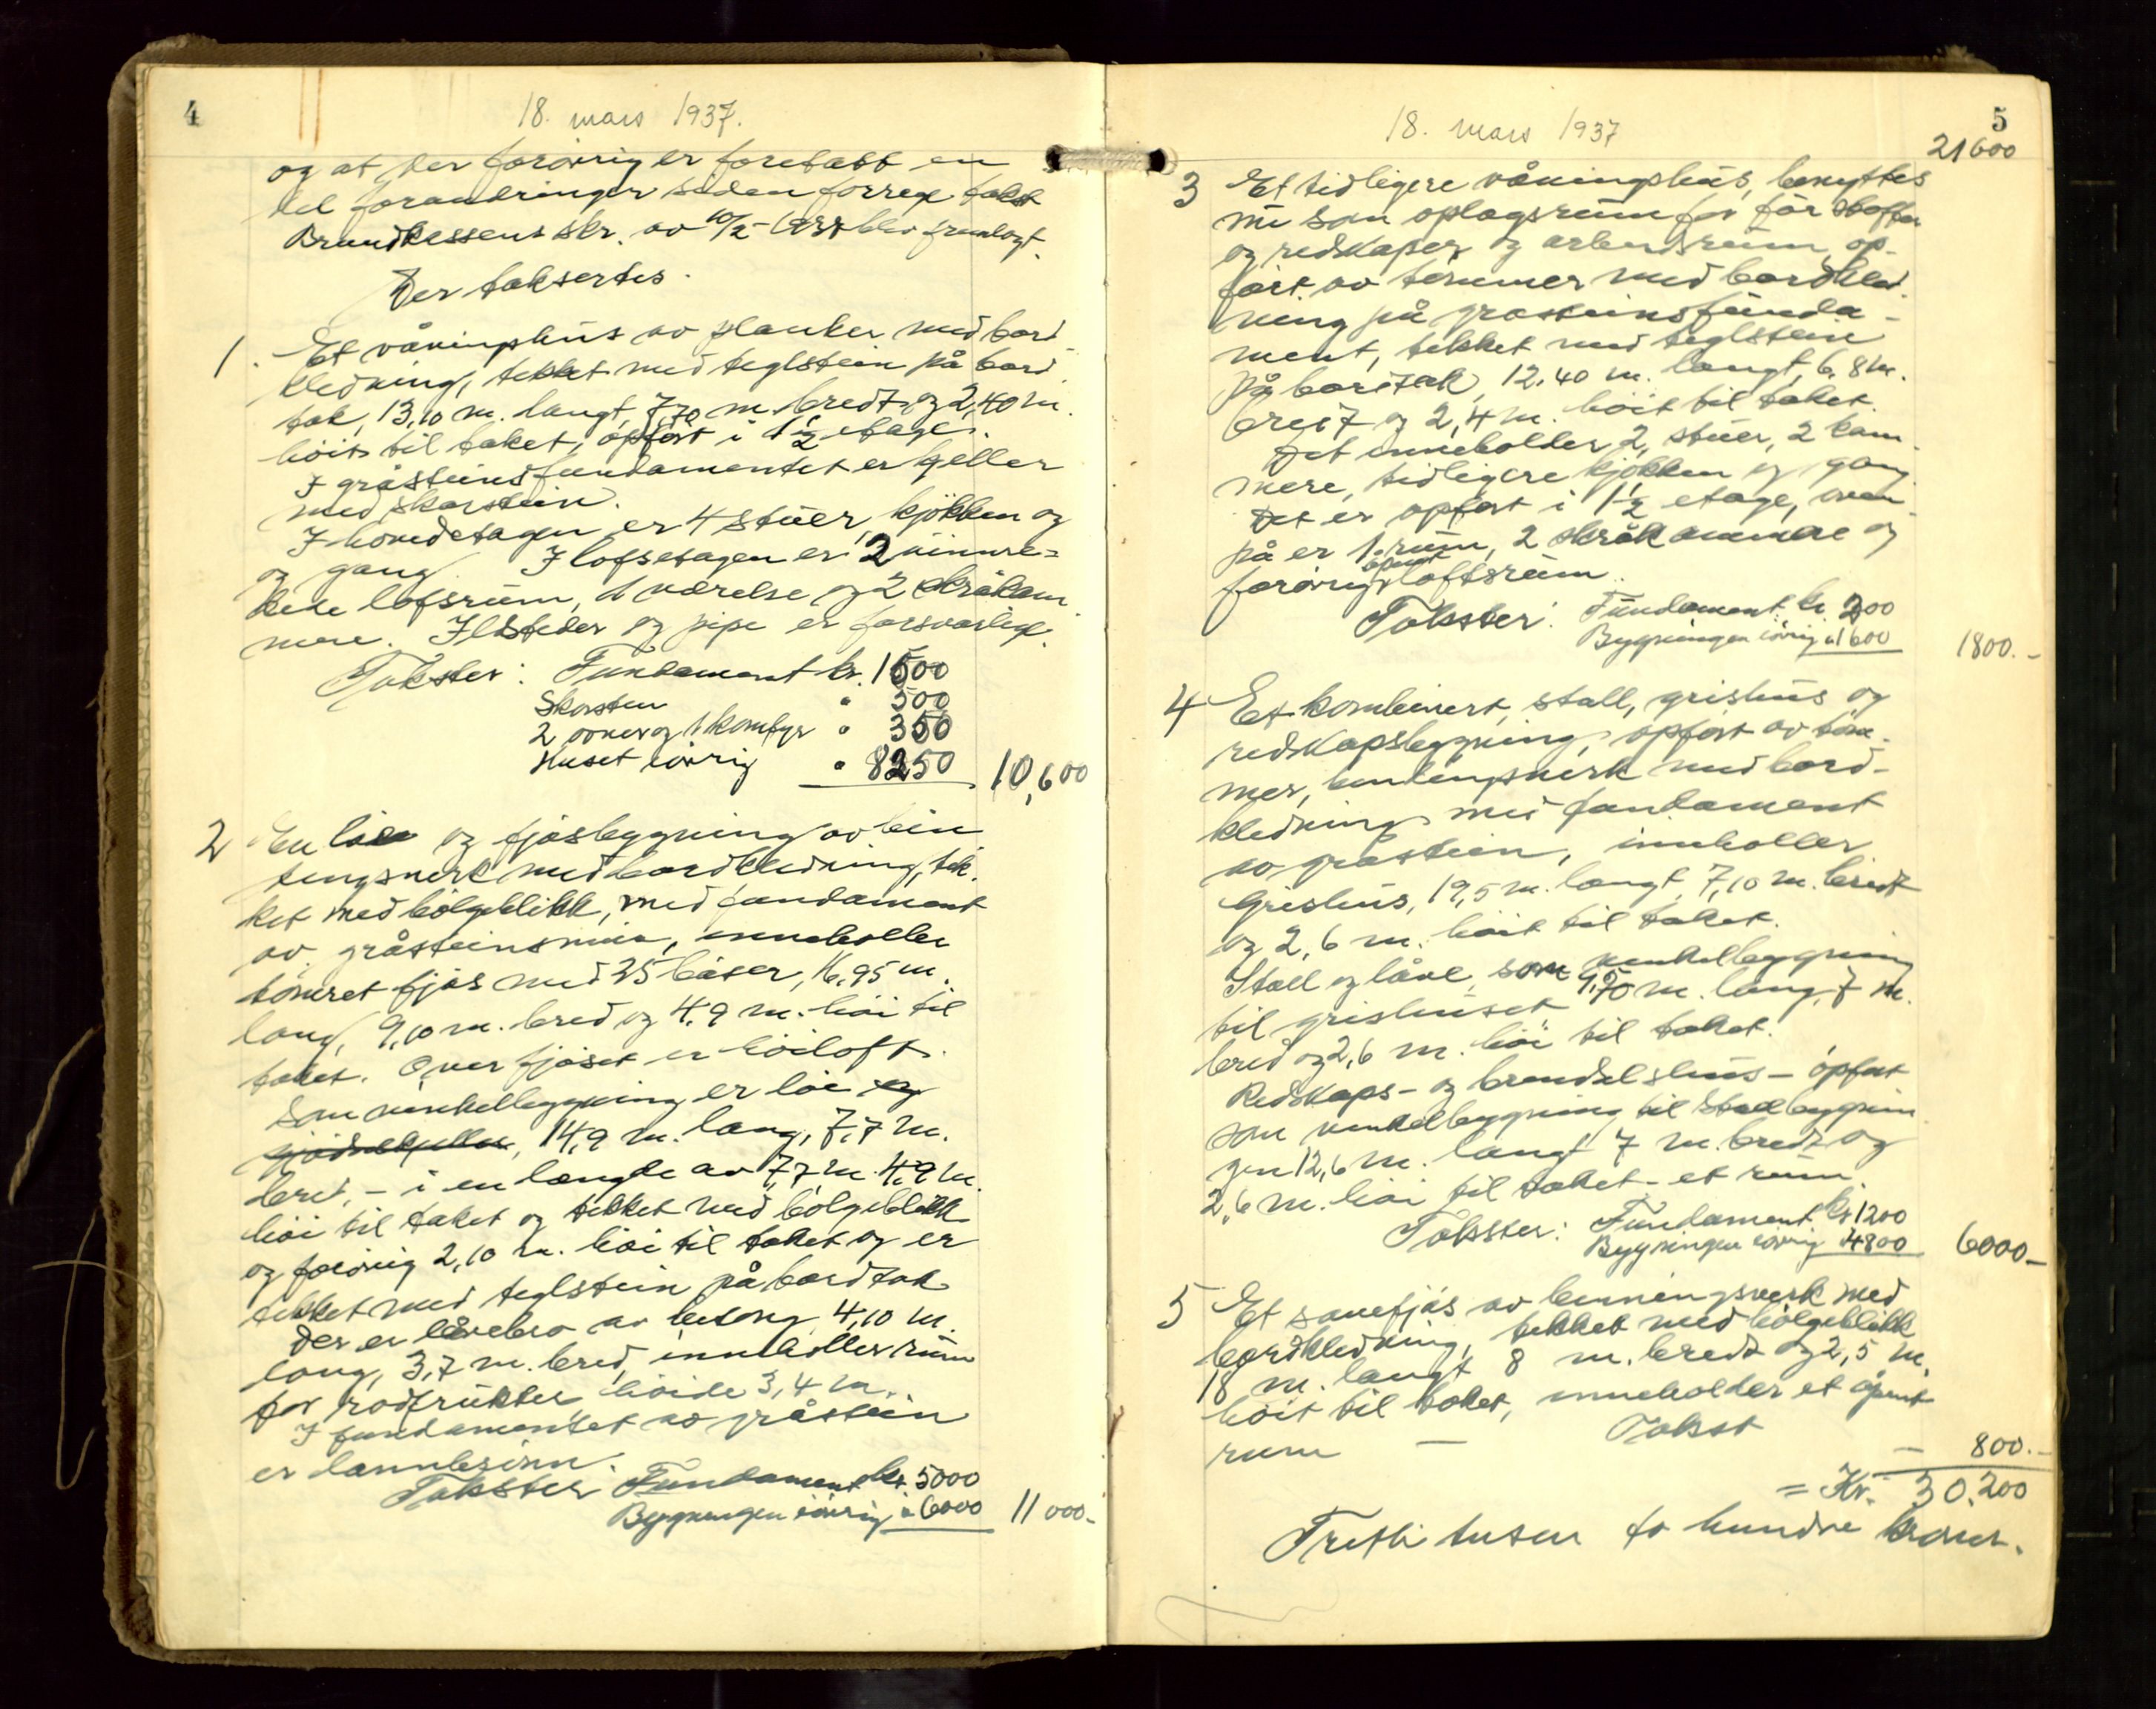 4
18. mars 1937.
og at der forøvrig er foretatt en
del forandringer siden forrige takst
Brandkassens skr. av 10/2- blev fremlagt.
Der taksertes.
1. Et våningshus av planker med bord-
kledning, tekket med teglstein på bord-
tak, 13,10 m. langt, 7,70 m bredt og 2,40 m.
höit til taket, opfört i 1½ etage.
I gråsteinsfundamentet er kjeller
med skorstein.
I hovedetagen er 4 stuer, kjökken og
og gang. I loftsetagen er 2 uinnre-
dede loftsrum, 1 værelse og 2 skråkam-
mere. Ildsteder og pipe er forsvarlige.
Takster: Fundament kr. 1500
Skorsten " 500
2 ovner og 1 komfyr " 350
Huset iövrig " 8250 10,600
2 En löe og fjösbygning av bin-
dingsverk med bordkledning, tek-
ket med bölgeblikk, med fundament
av gråsteinsmur, inneholler
tömret fjös med 25 båser, 16,95 m.
lang, 9,10 m. bred og 4,9 m. höi til
taket. Over fjöset er höiloft.
Som vinkelbygning er löe og
gjødselkjeller, 14,9 m. lang, 7,7 m.
bred, - i en længde av 7,7 m. 4,9 m.
höi til taket og tekket med bölgeblikk
og forövrig 2,10 m. höi til taket og er
tekket med teglstein på bordtak.
Der er låvebro av betong 4,10 m.
lang, 3,7 m. bred, inneholler rum
for rodfrukter, höide 3,4 m.
I fundamentet av gråstein
er
Takster Fundament kr. 5000
Bygningen iövrig " 6000 11 000-
5
18. mars 1937
21600
3 Et tidligere våningshus, benyttes
nu som oplagsrum for
og redskaper og arbeidsrum, op-
fört av tömmer med bordkled-
ning på gråsteinsfunda-
ment, tekket med teglstein
på bordtak, 12,40 m. langt, 6,8 m.
bredt og 2,4 m. höit til taket.
Det inneholder 2 stuer, 2 kam-
mere, tidligere kjökken og gang.
Det er opfört i 1½ etage, oven-
på er 1 rum, 2 skråkammere og
forövrig åpent loftsrum.
Takster: Fundament kr. 200
Bygningen iövrig " 1600 1800.-
4 Et kombinert stall, grishus og
redskapsbygning, opfört av töm-
mer, bindingsverk med bord-
kledning med fundament
av gråstein, inneholler
Grishus, 19,5 m. langt, 7,10 m. bredt
og 2,6 m. höit til taket.
Stall og låve, som vinkelbygning
til grishuset 9,70 m. lang, 7 m.
bred og 2,6 m. höi til taket.
Redskaps- og brendselshus - opfört
som vinkelbygning til stallbygnin-
gen 12,6 m. langt 7 m. bredt og
2,6 m. höi til taket - et rum.
Takster: Fundament kr 1200
Bygningen iövrig " 4800 6000-
5 Et sauefjös av binningsverk med
bordkledning, tekket med bölgeblikk
18 m. langt 8 m. bredt og 2,5 m.
höit til taket, inneholder et åpent
rum — Takst
— 800.-
= Kr. 30.200
Tretti tusen to hundre kroner.